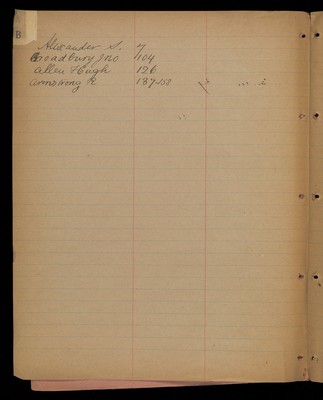 B
Alexander S. 7
Broadbury Jno 104
Allen Hugh 126
Armstrong R 137-158